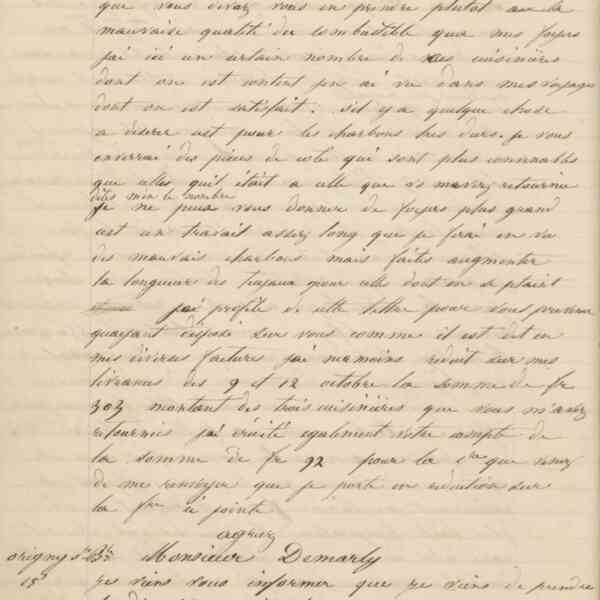 que vous devez vous en prendre plutot au de la
mauvaise qualité du combustible que mes foyers
j'ai ici un certain nombre de mes cuisinières
dont on est content j'en ai vu dans mes voyages
dont on est satisfait. s'il y a quelque chose
a désirer est pour les charbons tres durs. je vous
enverrai des pieces de cote qui sont plus connaable
que celles qu'il était a celle que vs m'avez retournée
dites moi le nombre
Je ne puis vous donner de foyers plus grand
est un travail assez long que je ferai en vu
des mauvais charbons mais faites augmenter
la longueur des tuyaux pour celles dont on se plaint
j'ai profité de cette lettre pour vous prevenir
qu'ayant disposé sur vous comme il est dit en
mes diverses factures j'ai neamoins reduit sur mes
livraisons des 9 et 12 octobre la somme de fr
303 montant des trois cuisinières que vous m'avez
retournées j'ai crédité egalement votre compte de
la somme de fr 92 pour la que venez
de me renvoyer que je porte en réduction sur
la fre ci jointe
agréez
origny Ste Bte Monsieur Demarly
15d Je viens vous informer que je viens de prendre